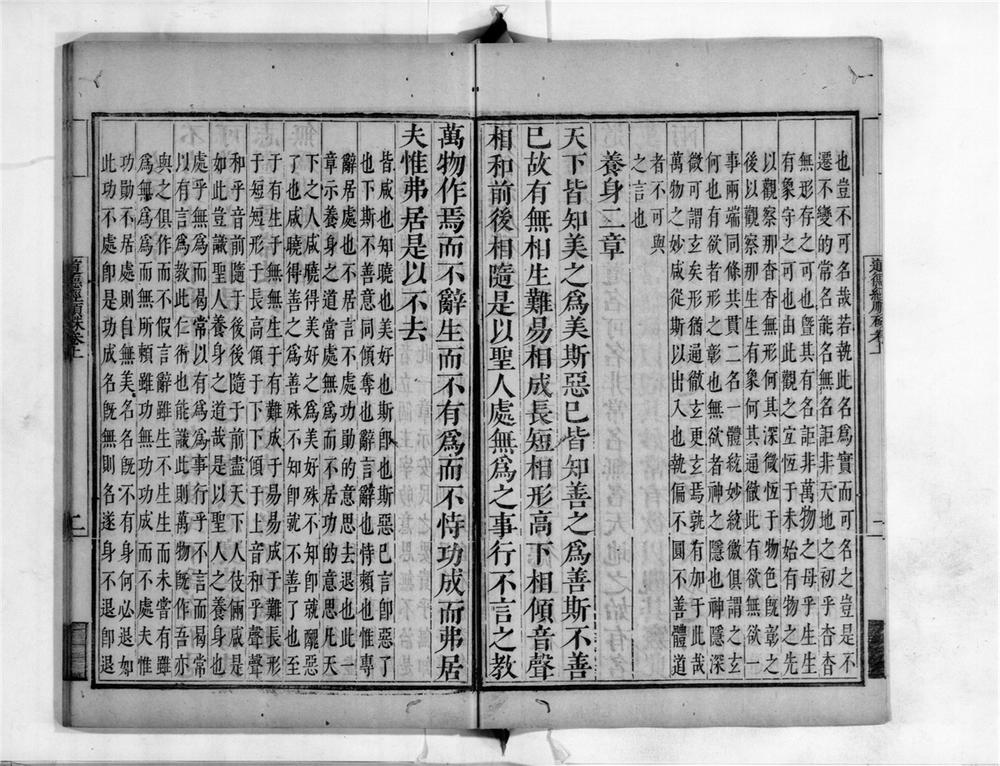 也豈不可名哉若執此名為實而可名之豈是不
遷不變的常名能名無名詎非天地之初乎杳杳
無形存之可也曁其有名詎非萬物之母乎生生
有象守之可也由此觀之宜恆于未始有物之先
以觀察那杳杳無形何其深微恆于物色旣彰之
後以觀察那生生有象何其通徹此有欲無欲一
事兩端同條共貫二名一體統妙統徼俱謂之玄
何也有欲者形之彰也無欲者神之隱也神隱深
微可謂玄矣形猶通徹玄更玄焉孰有加于此哉
萬物之妙咸從斯以出入也執偏不圓不善體道
者不可與
之言也
養身二章
天下皆知美之為美斯惡已皆知善之為善斯不善
已故有無相生難易相成長短相形高下相傾音聲
相和前後相隨是以聖人處無為之事行不言之教
萬物作焉而不辭生而不有為而不恃功成而弗居
夫惟弗居是以不去
皆咸也知曉也美好也斯卽也斯惡已言卽惡了
也下斯不善意同傾奪也辭言辭也恃賴也惟專
辭居處也不居言不處功勛的意思去退也此一
章示養身之道當處無為而不居功的意思凡天
下之人咸曉得美好之為美好殊不知卽就醜惡
了也咸曉得善之為善殊不知卽就不善了也至
于有生于無無生于有難成于易易成于難長形
于短短形于長高傾于下下傾于上音和乎聲聲
和乎音前隨于後後隨于前盡天下人伎倆咸是
如此豈識聖人養身之道哉是以聖人之養身也
處乎無為而曷常以有為為事行乎不言而曷常
以有言為教此仁術也能識此則萬物旣作吾亦
與之俱作而不假言辭雖生不生生而未嘗有雖
為無為為而無所賴雖功無功功成而不處夫惟
功勛不居處則自無美名名旣不有身何必退如
此功不處卽是功成名旣無則名遂身不退卽退